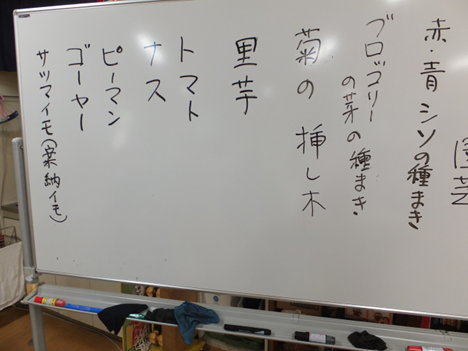 園芸
赤・青シソの種まき
ブロッコリー
の芽の種まき
菊の挿し木
里芋
トマト
ナス
ピーマン
ゴーヤー
サツマイモ(安納イモ)